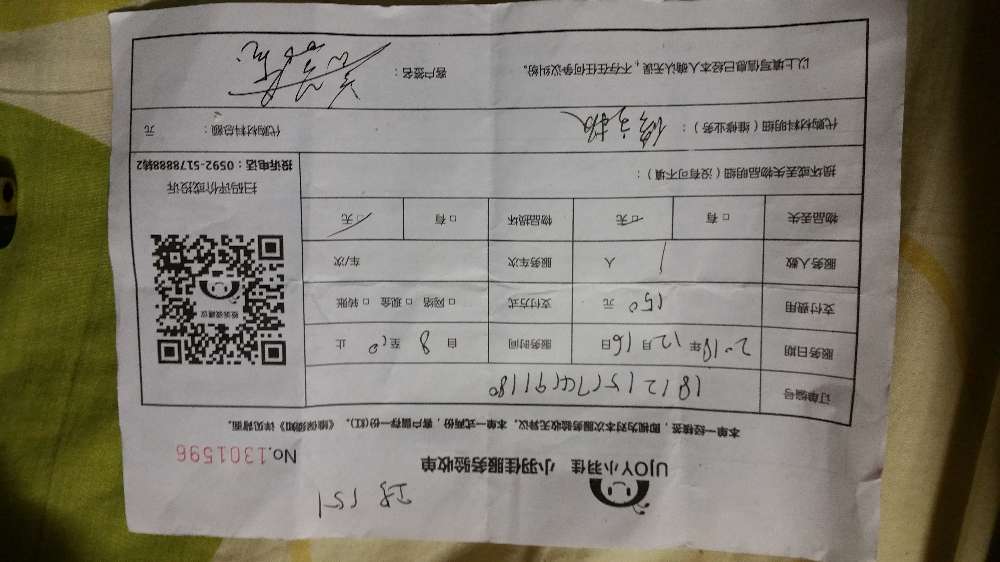 UJOY小羽佳 小羽佳服务验收单
No.1301596
本单一经接签，即视为对本次服务验收无异议。本单一式两份，客户留存一份(红)。《维保须知》详见背面。
订单编号
服务日期 2018年12月16日 服务时间 自 8 至 10 止
支付费用 150 元 支付方式 □ 网络 □ 现金 □ 转账
服务人数 1 人 服务车次 车/次
物品丢失 □ 有 □ 无 物品损坏 □ 有 □ 无
投诉或建议
扫码评价或投诉
投诉电话：0592-5178888转2
损坏或丢失物品明细（没有可不填）：
代购材料明细（维修业务）：
代购材料总额： 元
以上填写信息已经本人确认无误，不存在任何争议纠纷。 客户签名：